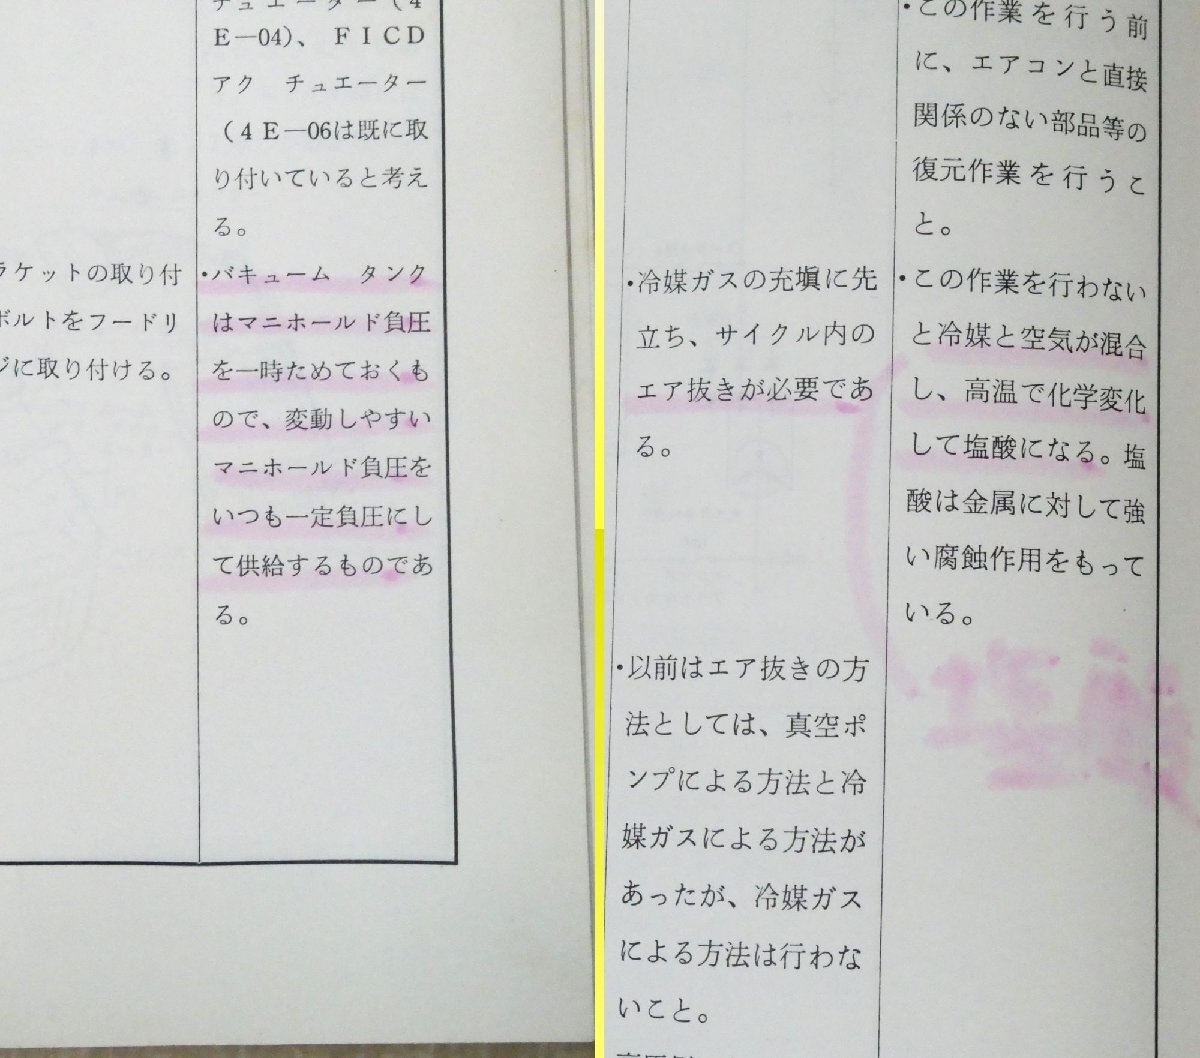 チュエーター(4
E—04)、FICD
アク チュエーター
(4E—06は既に取
り付いていると考え
る。
ラケットの取り付
ボルトをフードリ
ジに取り付ける。
・バキューム タンク
はマニホールド負圧
を一時ためておくも
ので、変動しやすい
マニホールド負圧を
いつも一定負圧にし
て供給するものであ
る。
・冷媒ガスの充塡に先
立ち、サイクル内の
エア抜きが必要であ
る。
・以前はエア抜きの方
法としては、真空ポ
ンプによる方法と冷
媒ガスによる方法が
あったが、冷媒ガス
による方法は行わな
いこと。
・この作業を行う前
に、エアコンと直接
関係のない部品等の
復元作業を行うこ
と。
・この作業を行わない
と冷媒と空気が混合
し、高温で化学変化
して塩酸になる。塩
酸は金属に対して強
い腐蝕作用をもって
いる。